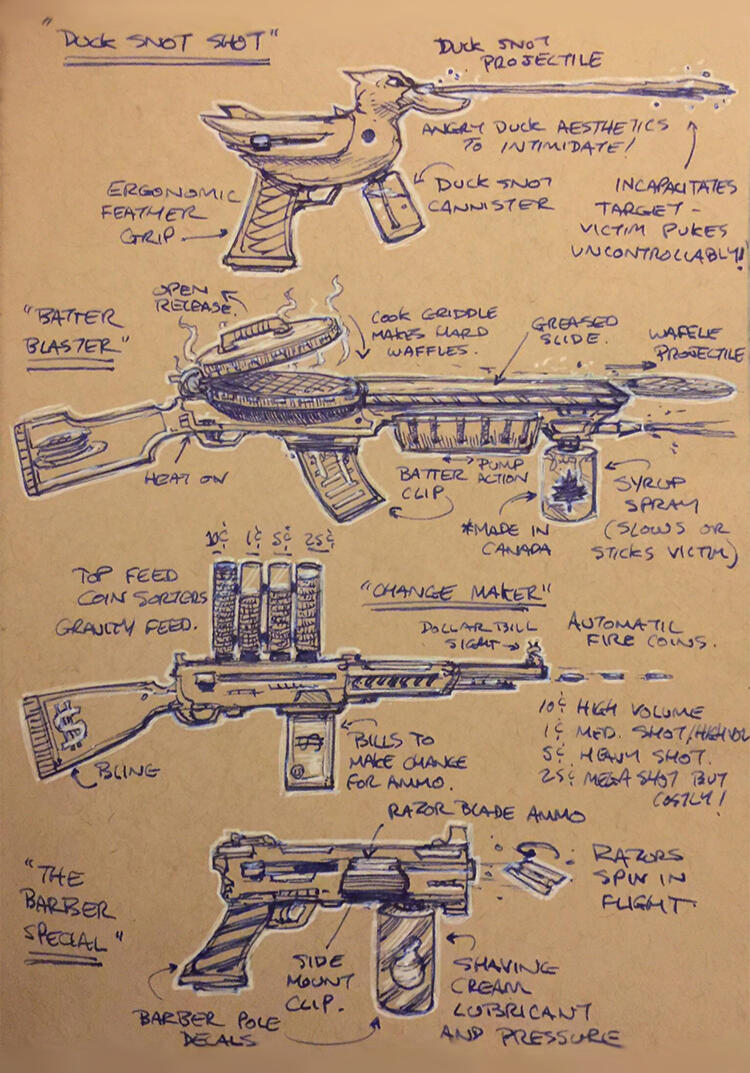 "DUCK SNOT SHOT"
DUCK SNOT
PROJECTILE
ANGRY DUCK AESTHETICS
TO INTIMIDATE!
ERGONOMIC
FEATHER
GRIP
DUCK SNOT
CANNISTER
INCAPACITATES
TARGET -
VICTIM PUKES
UNCONTROLLABLY!
"BATTER
BLASTER"
OPEN
RELEASE.
COOK GRIDDLE
MAKES HARD
WAFFLES.
GREASED
SLIDE.
WAFFLE
PROJECTILE
HEAT ON
BATTER
CLIP
PUMP
ACTION
*MADE IN
CANADA
SYRUP
SPRAY
(SLOWS OR
STICKS VICTIM)
10¢ 1¢ 5¢ 25¢
TOP FEED
COIN SORTERS
GRAVITY FEED.
"CHANGE MAKER"
DOLLAR BILL
SIGHT
AUTOMATIC
FIRE COINS.
$
$
$
BLING
BILLS TO
MAKE CHANGE
FOR AMMO.
10¢ HIGH VOLUME
1¢ MED. SHOT/HIGH VOL
5¢ HEAVY SHOT.
25¢ MEGA SHOT BUT
COSTLY!
"THE
BARBER
SPECIAL"
RAZOR BLADE AMMO
RAZORS
SPIN IN
FLIGHT
SIDE
MOUNT
CLIP.
BARBER POLE
DECALS
SHAVING
CREAM
LUBRICANT
AND PRESSURE